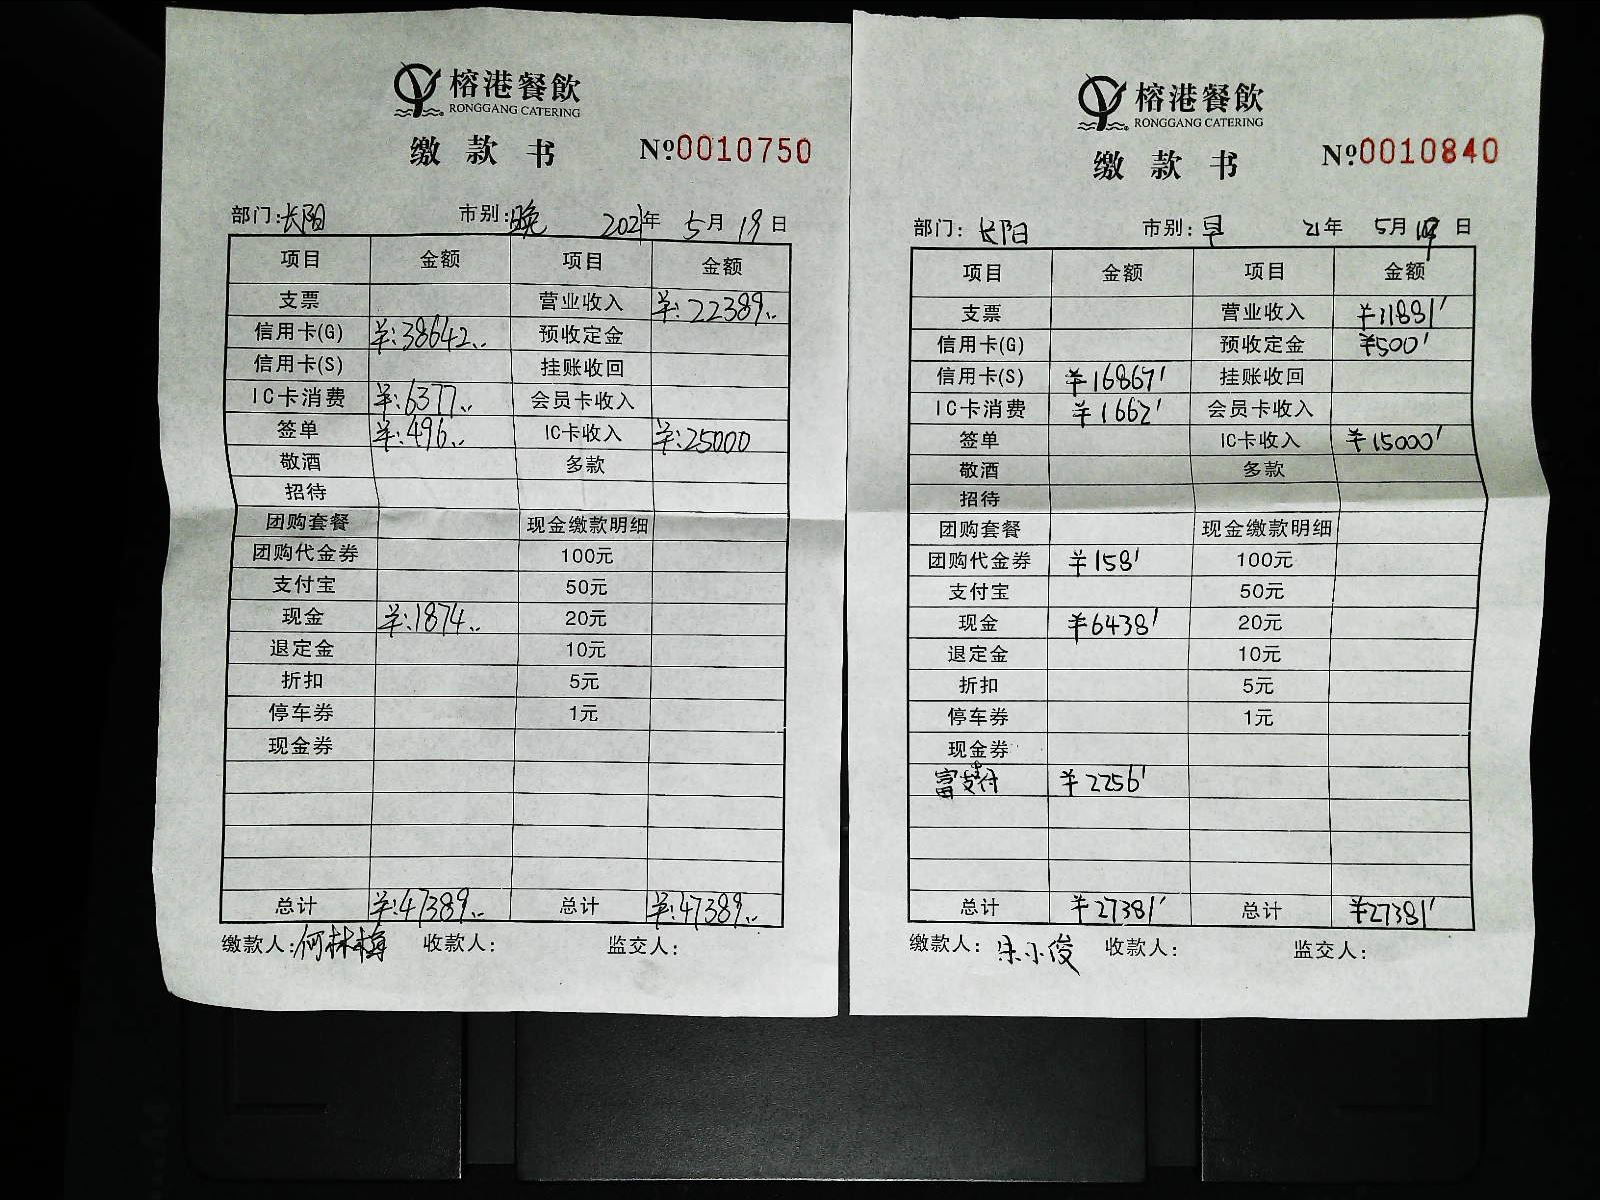 榕港餐飲
RONGGANG CATERING
缴款书 №0010750
部门:长阳 市别:晚 2021年 5月19日
项目 金额 项目 金额
支票 营业收入 ¥:22389..
信用卡(G) ¥:38642.. 预收定金
信用卡(S) 挂账收回
IC卡消费 ¥:6377.. 会员卡收入
签单 ¥:496.. IC卡收入 ¥:25000
敬酒 多款
招待
团购套餐 现金缴款明细
团购代金券 100元
支付宝 50元
现金 ¥:1874.. 20元
退定金 10元
折扣 5元
停车券 1元
现金券
总计 ¥:47389.. 总计 ¥:47389..
缴款人:何林梅 收款人: 监交人:
榕港餐飲
RONGGANG CATERING
缴款书 №0010840
部门:长阳 市别:早 21年 5月19日
项目 金额 项目 金额
支票 营业收入 ¥11881'
信用卡(G) 预收定金 ¥500'
信用卡(S) ¥16867' 挂账收回
IC卡消费 ¥1662' 会员卡收入
签单 IC卡收入 ¥15000'
敬酒 多款
招待
团购套餐 现金缴款明细
团购代金券 ¥158' 100元
支付宝 50元
现金 ¥6438' 20元
退定金 10元
折扣 5元
停车券 1元
现金券
富支付 ¥2256'
总计 ¥27381' 总计 ¥27381'
缴款人:朱小俊 收款人: 监交人: